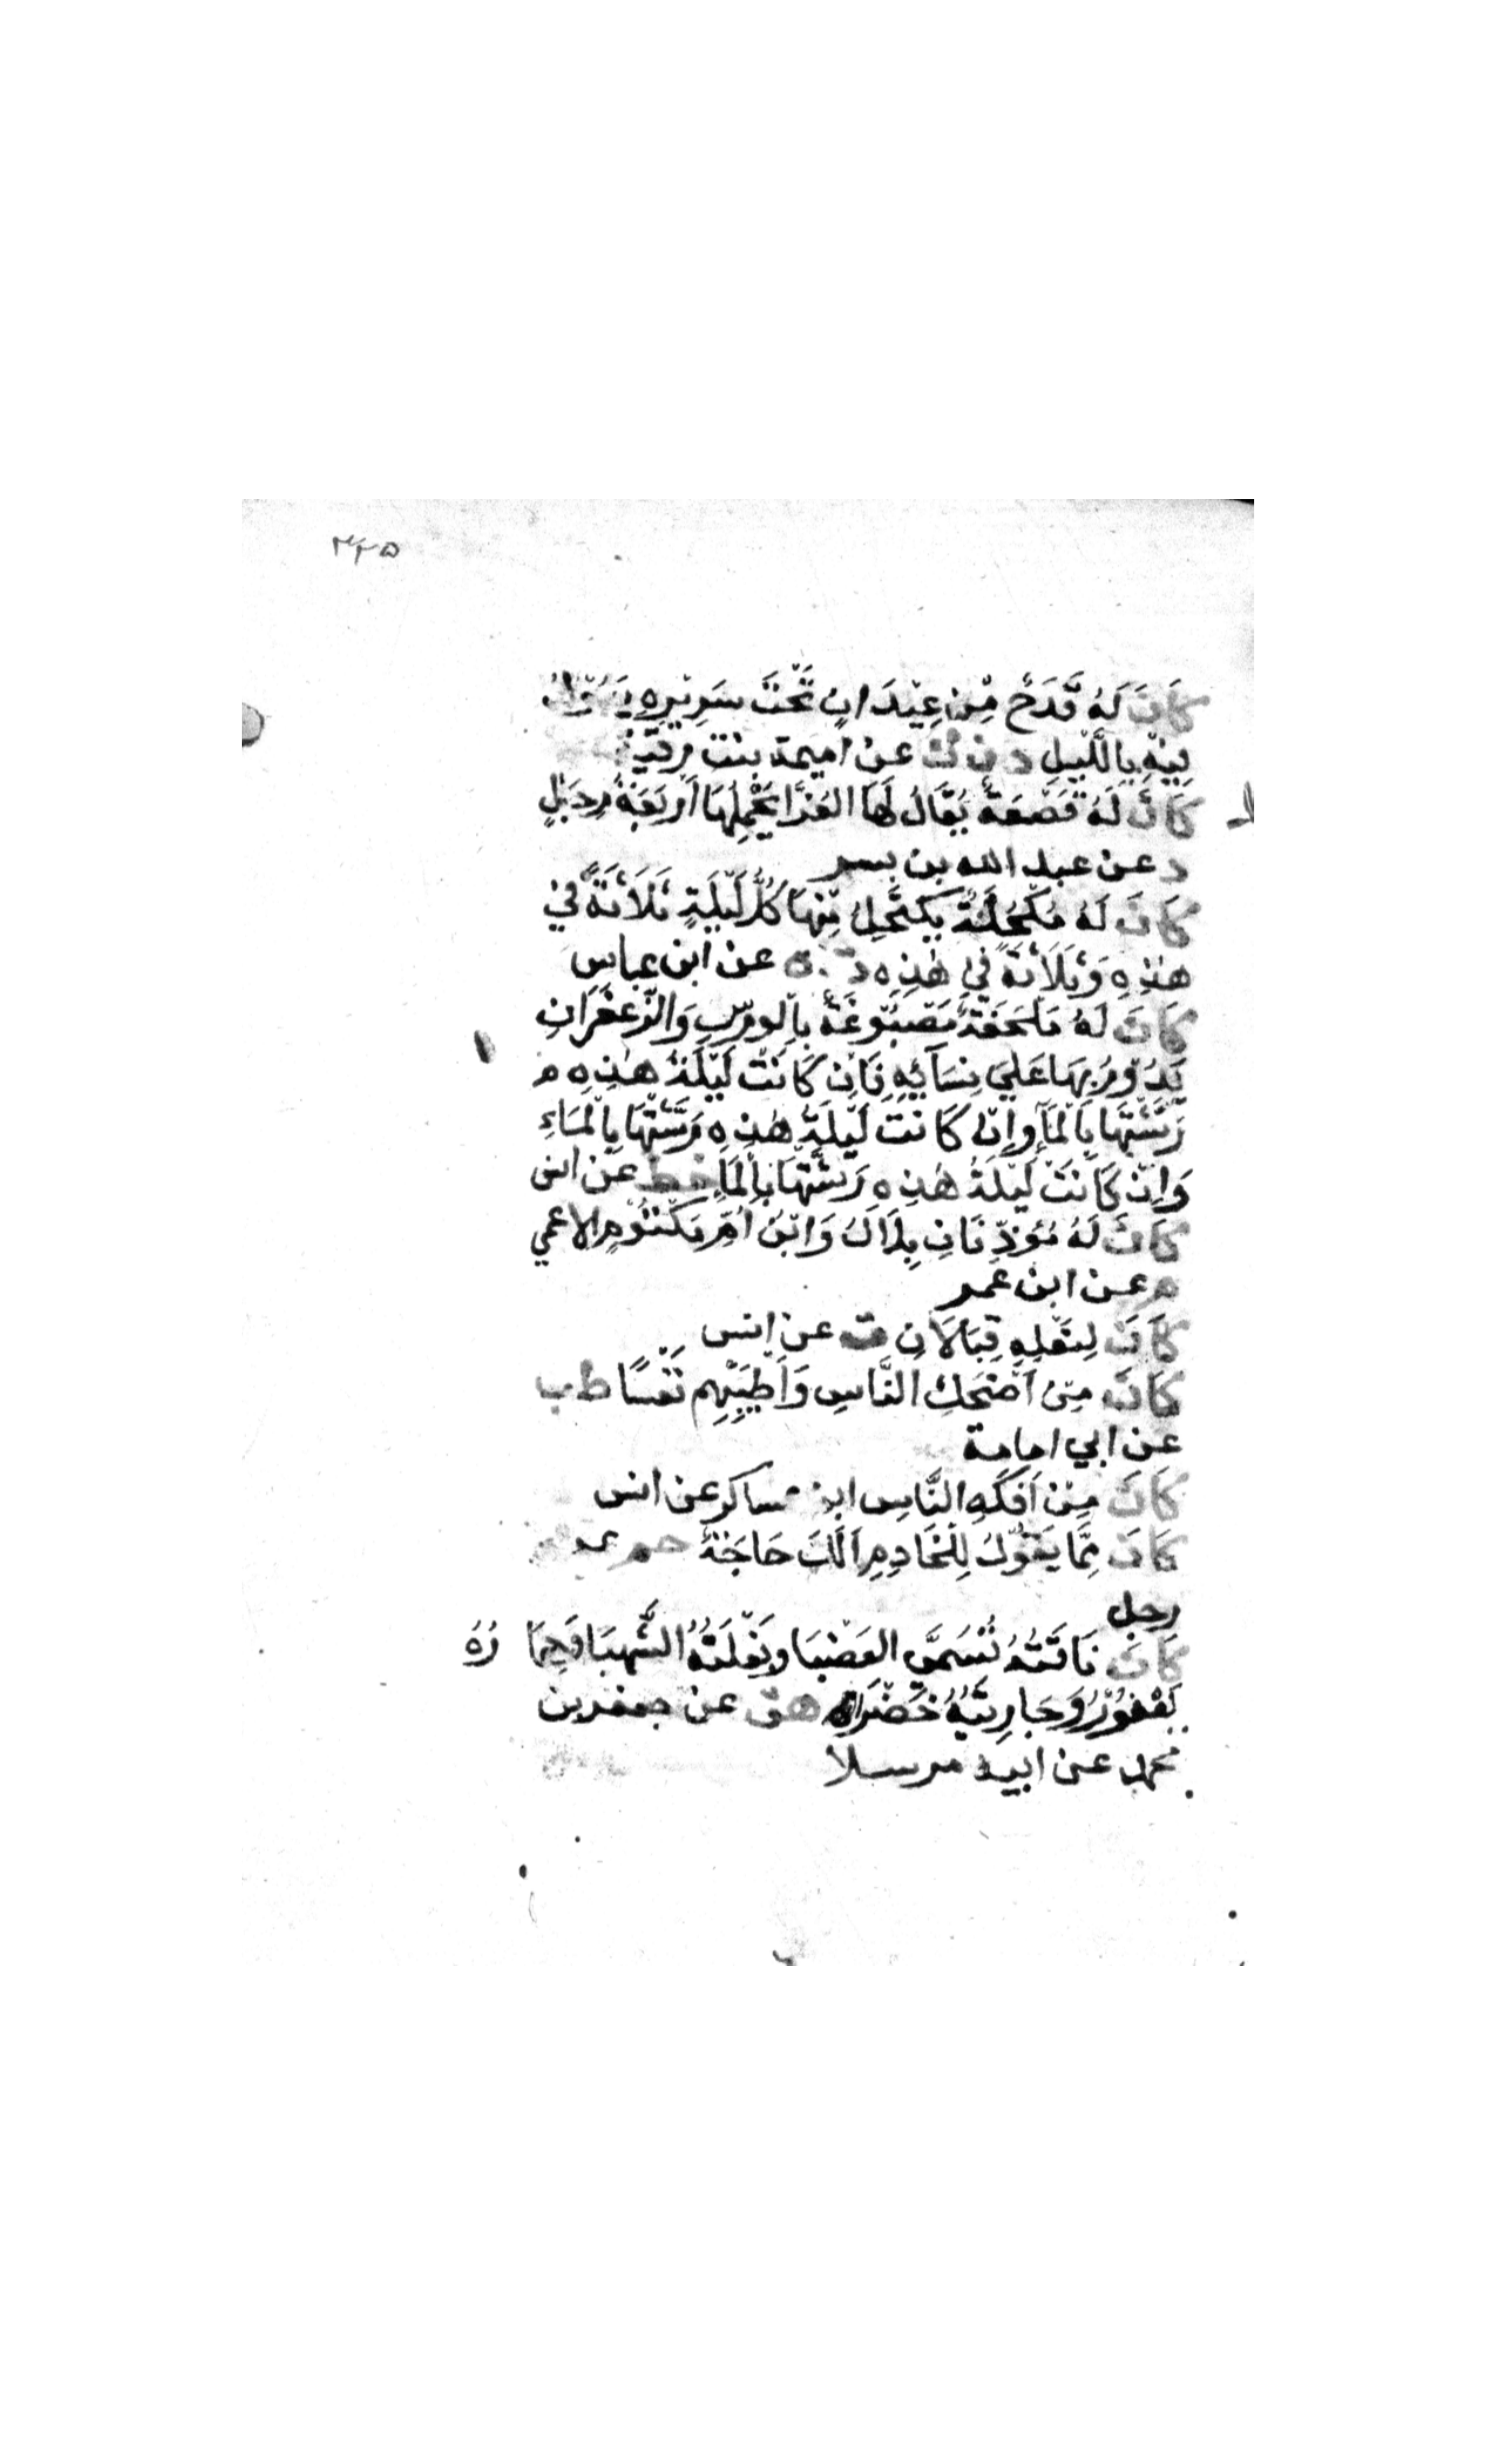 ٣٢٥
كَانَ لَهُ قَدَحٌ مِنْ عِيْدَانٍ تَحْتَ سَرِيْرِهِ يَبُوْلُ
فِيْهِ بِاللَّيْلِ د ن ك عن اميمة بنت رقيقة
كَانَ لَهُ قَصْعَةٌ يُقَالُ لَهَا الغَرَّا يَحْمِلُهَا أَرْبَعَةُ رِجَالٍ
د عن عبد الله بن بسر
كَانَ لَهُ مُكْحُلَةٌ يَكْتَحِلُ مِنْهَا كُلَّ لَيْلَةٍ ثَلَاثَةً فِي
هٰذِهِ وَثَلَاثَةً فِي هٰذِهِ ت ه عن ابن عباس
كَانَ لَهُ مِلْحَفَةٌ مَصْبُوْغَةٌ بِالْوَرْسِ وَالزَّعْفَرَانِ
يَدُوْرُ بِهَا عَلَي نِسَائِهِ فَاِنْ كَانَتْ لَيْلَةُ هٰذِهِ
رَشَّتْهَا بِالْمَآءِ وَاِنْ كَانَتْ لَيْلَةُ هٰذِهِ رَشَّتْهَا بِالْمَاءِ
وَاِنْ كَانَتْ لَيْلَةُ هٰذِهِ رَشَّتْهَا بِالْمَاءِ خط عن انس
كَانَ لَهُ مُؤَذِّنَانِ بِلَالٌ وَابْنُ اُمِّ مَكْتُوْمٍ الاعمي
م عن ابن عمر
كَانَ لِنَعْلِهِ قِبَالَانِ ت عن انس
كَانَ مِنْ اَضْحَكِ النَّاسِ وَاَطْيَبِهِم نَفْسًا طب
عن ابي امامة
كَانَ مِنْ اَفْكَهِ النَّاسِ ابن عساكر عن انس
كَانَ مِمَّا يَقُوْلُ لِلْخَادِمِ اَلَكَ حَاجَةٌ حم عن
رجل
كَانَ نَاقَتُهُ تُسَمَّي العَضْبَا وبَغْلَتُهُ الشَّهْبَا وَحِمَا رُهُ
يَعْفُوْرُ وَجَارِيَتُهُ خَضْرَه هق عن جعفر بن
محمد عن ابيه مرسلا